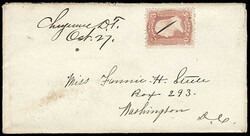 Cheyenne D.T.
Oct. 27.
Miss Fannie H. Steele
Box 293.
Washington
D.C.